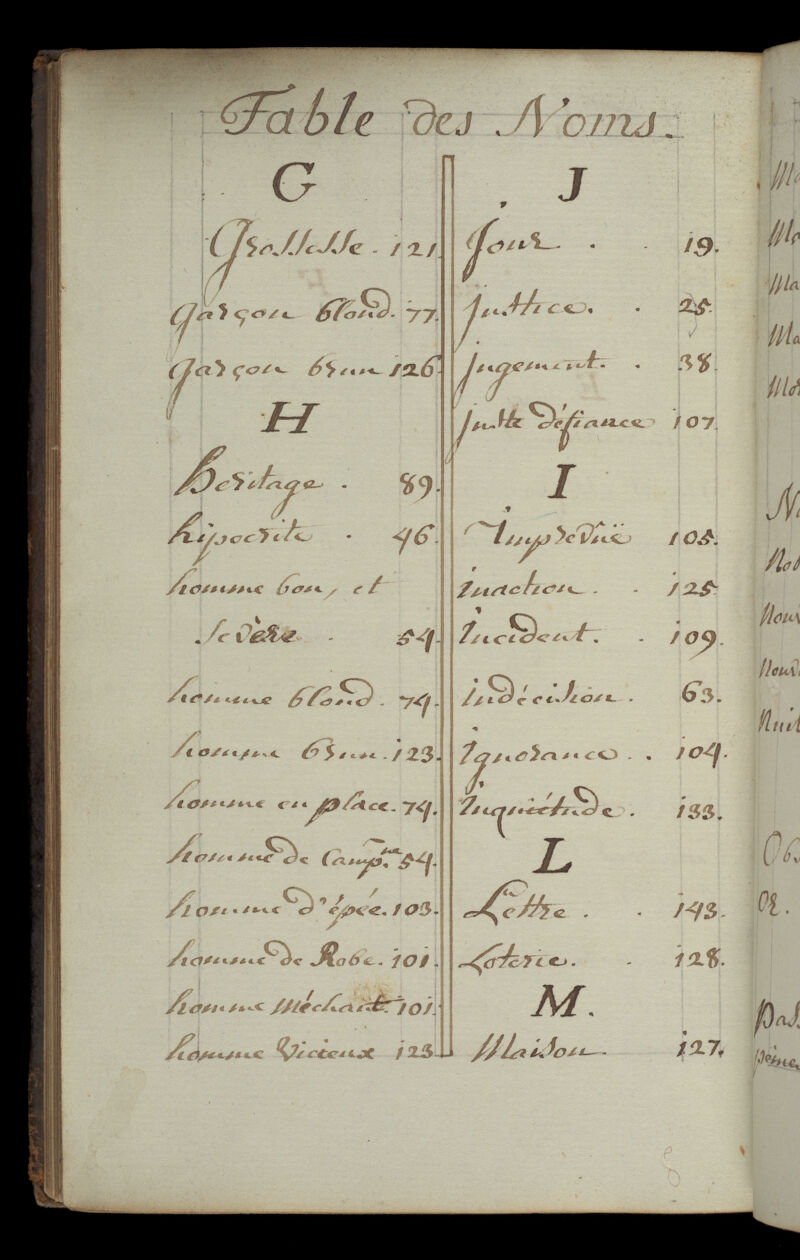 Table des Noms.
G
Grossesse. 121
garçon blond. 77.
garçon brun 126
H
heritage. 89.
hipocrite. 46.
homme bon, et
sevère. 54.
homme blond. 74.
homme brun. 123.
homme en place. 74.
homme de Camp.ne 54.
homme d'épée. 103.
homme de Robe. 101.
homme méchant. 101.
homme vicieux 123
J
Jour. . 19.
justice. . 25.
jugement. . 38
juste défiance 107.
I
Imprevüe 105.
inaction. . 125
incident. . 109.
indécision. 63.
ignorance. . 104.
inquiétude. 133.
L
Lettre. . 143.
Loterie. . 128.
M.
Maison. 127.
Ma
Ma
Ma
Ma
Mor
N
Nob
Nour
Nouv
Nuit
Obs
Or.
Pas